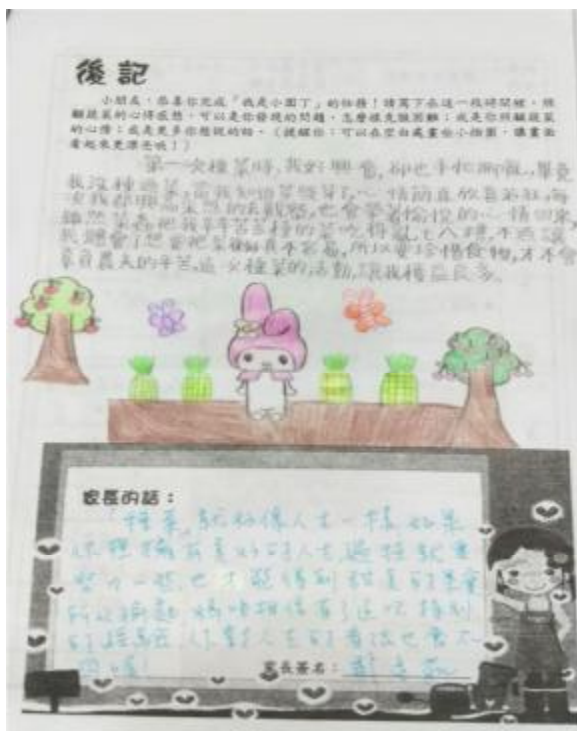 後記
小朋友,恭喜你完成「我是小園丁」的任務!請寫下在這一段時間裡,照
顧蔬菜的心得感想,可以是你發現的問題,怎麼樣克服困難;或是你照顧蔬菜
的心情;或是更多你想說的話。(提醒你:可以在空白處畫些小插圖,讓畫面
看起來更漂亮哦!)
第一次種菜時,我好興奮,卻也手忙腳亂,畢竟
我沒種過菜,當我知道菜發芽了,心情簡直欣喜若狂,每
次我都興高采烈的去觀察,也會帶著愉悅的心情回來,
雖然菜蟲把我辛辛苦苦種的菜吃得亂七八糟,不過讓
我體會了想要把菜種好真不容易,所以要珍惜食物,才不會
辜負農夫的辛苦,這次種菜的活動,讓我獲益良多。
家長的話:
「種菜」就好像人生一樣,如果
你想擁有美好的人生,過程就要
努力一些,也才能得到甜美的果實
媽咪相信有了這次特別
的經驗,你對人生的看法也會不
一樣!
家長簽名: